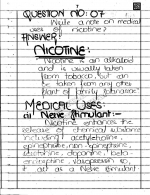 QUESTION NO: 07
Write a note on medical
uses of nicotine?
ANSWER:
NICOTINE:
Nicotine is an alkaloid
and is usually taken
from tobacco, but can
be taken from any other
plant of family "solanaceae".
MEDICAL USES:
Nerve Stimulant:-
Nicotine enhances the
release of chemical substance
including acetylcholine,
epinephrine, nor epinephrine,
serotonin, dopamine, beta
endorphine, vasopressin so,
it act as a Nerve stimulant